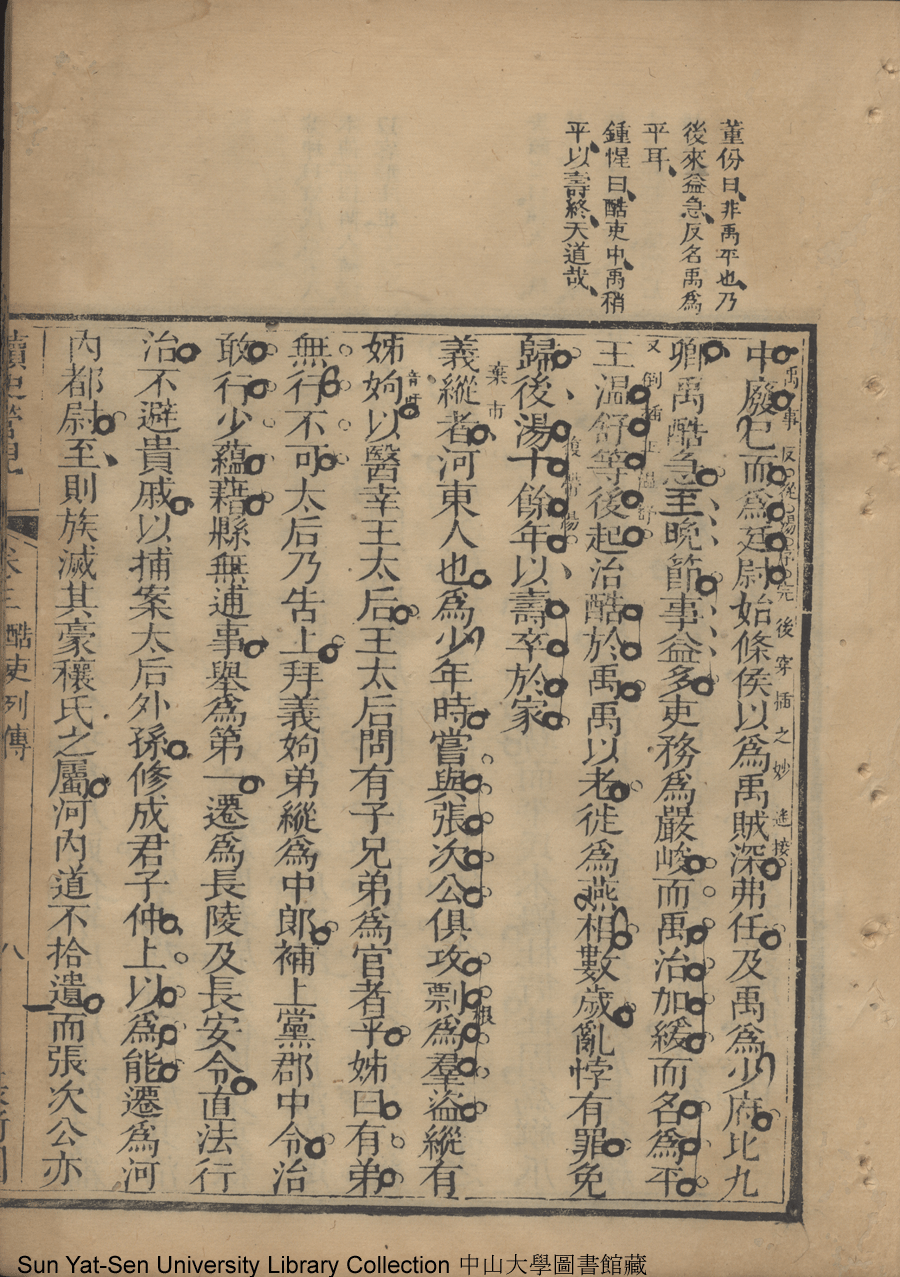 董份曰非禹平也乃
後來益急反名禹為
平耳
鍾惺曰酷吏中禹稍
平以壽終天道哉
禹事反從湯序完後穿插之妙遙接
中廢已而為廷尉始條侯以為禹賊深弗任及禹為少府比九
卿禹酷急至晚節事益多吏務為嚴峻而禹治加緩而名為平
又倒插上溫舒
王溫舒等後起治酷於禹禹以老徙為燕相數歲亂悖有罪免
復借湯
歸後湯十餘年以壽卒於家
棄市
義縱者河東人也為少年時嘗與張次公俱攻剽為羣盜縱有
根
姊姁以醫幸王太后王太后問有子兄弟為官者乎姊曰有弟
音
無行不可太后乃告上拜義姁弟縱為中郎補上黨郡中令治
敢行少蘊藉縣無逋事舉為第一遷為長陵及長安令直法行
治不避貴戚以捕案太后外孫修成君子仲上以為能遷為河
內都尉至則族滅其豪穰氏之屬河內道不拾遺而張次公亦
卷三 酷吏列傳
八
Sun Yat-Sen University Library Collection 中山大學圖書館藏